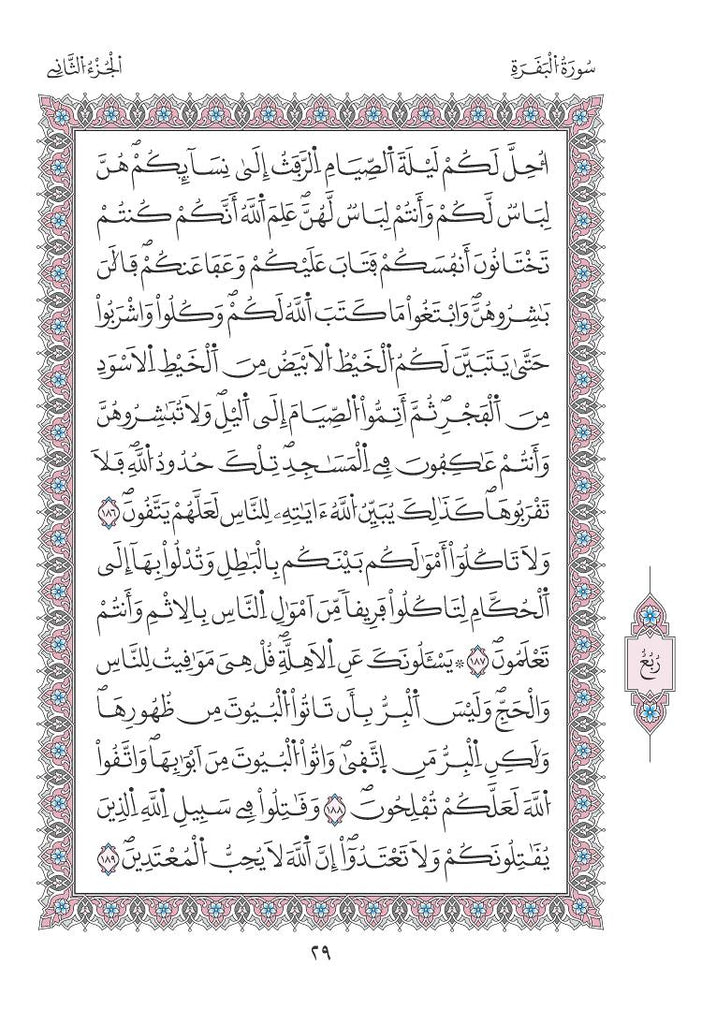 سُورَةُ اُ۬لْبَقَرَةِ
اَ۬لْجُزْءُ اُ۬لثَّانِے
اُحِلَّ لَكُمْ لَيْلَةَ اَ۬لصِّيَامِ اِ۬لرَّفَثُ إِلَىٰ نِسَآئِكُمْۖ هُنَّ
لِبَاسٞ لَّكُمْ وَأَنتُمْ لِبَاسٞ لَّهُنَّۖ عَلِمَ اَ۬للَّهُ أَنَّكُمْ كُنتُمْ
تَخْتَانُونَ أَنفُسَكُمْ فَتَابَ عَلَيْكُمْ وَعَفَا عَنكُمْۖ فَالَٰنَ
بَٰشِرُوهُنَّۖ وَابْتَغُواْ مَا كَتَبَ اَ۬للَّهُ لَكُمْۖ وَكُلُواْ وَاشْرَبُواْ
حَتَّىٰ يَتَبَيَّنَ لَكُمُ اُ۬لْخَيْطُ اُ۬لَابْيَضُ مِنَ اَ۬لْخَيْطِ اِ۬لَاسْوَدِ
مِنَ اَ۬لْفَجْرِۖ ثُمَّ أَتِمُّواْ اُ۬لصِّيَامَ إِلَى اَ۬ليْلِۖ وَلَا تُبَٰشِرُوهُنَّ
وَأَنتُمْ عَٰكِفُونَ فِے اِ۬لْمَسَٰجِدِۖ تِلْكَ حُدُودُ اُ۬للَّهِۖ فَلَا
تَقْرَبُوهَاۖ كَذَٰلِكَ يُبَيِّنُ اُ۬للَّهُ ءَايَٰتِهِۦ لِلنَّاسِ لَعَلَّهُمْ يَتَّقُونَۖ ١٨٦
وَلَا تَاكُلُوٓاْ أَمْوَٰلَكُم بَيْنَكُم بِالْبَٰطِلِ وَتُدْلُواْ بِهَآ إِلَى
اَ۬لْحُكَّامِ لِتَاكُلُواْ فَرِيقاٗ مِّنَ اَمْوَٰلِ اِ۬لنَّاسِ بِالِاثْمِ وَأَنتُمْ
تَعْلَمُونَۖ ١٨٧ ۞ يَسْـَٔلُونَكَ عَنِ اِ۬لَاهِلَّةِۖ قُلْ هِىَ مَوَٰقِيتُ لِلنَّاسِ
وَالْحَجِّۖ وَلَيْسَ اَ۬لْبِرُّ بِأَن تَاتُواْ اُ۬لْبُيُوتَ مِن ظُهُورِهَاۖ
وَلَٰكِنِ اِ۬لْبِرُّ مَنِ اِ۪تَّقَىٰۖ وَاتُواْ اُ۬لْبُيُوتَ مِنَ اَبْوَٰبِهَاۖ وَاتَّقُواْ
اُ۬للَّهَ لَعَلَّكُمْ تُفْلِحُونَۖ ١٨٨ وَقَٰتِلُواْ فِے سَبِيلِ اِ۬للَّهِ اِ۬لذِينَ
يُقَٰتِلُونَكُمْ وَلَا تَعْتَدُوٓاْۖ إِنَّ اَ۬للَّهَ لَا يُحِبُّ اُ۬لْمُعْتَدِينَۖ ١٨٩
رُبُعُ
٢٩